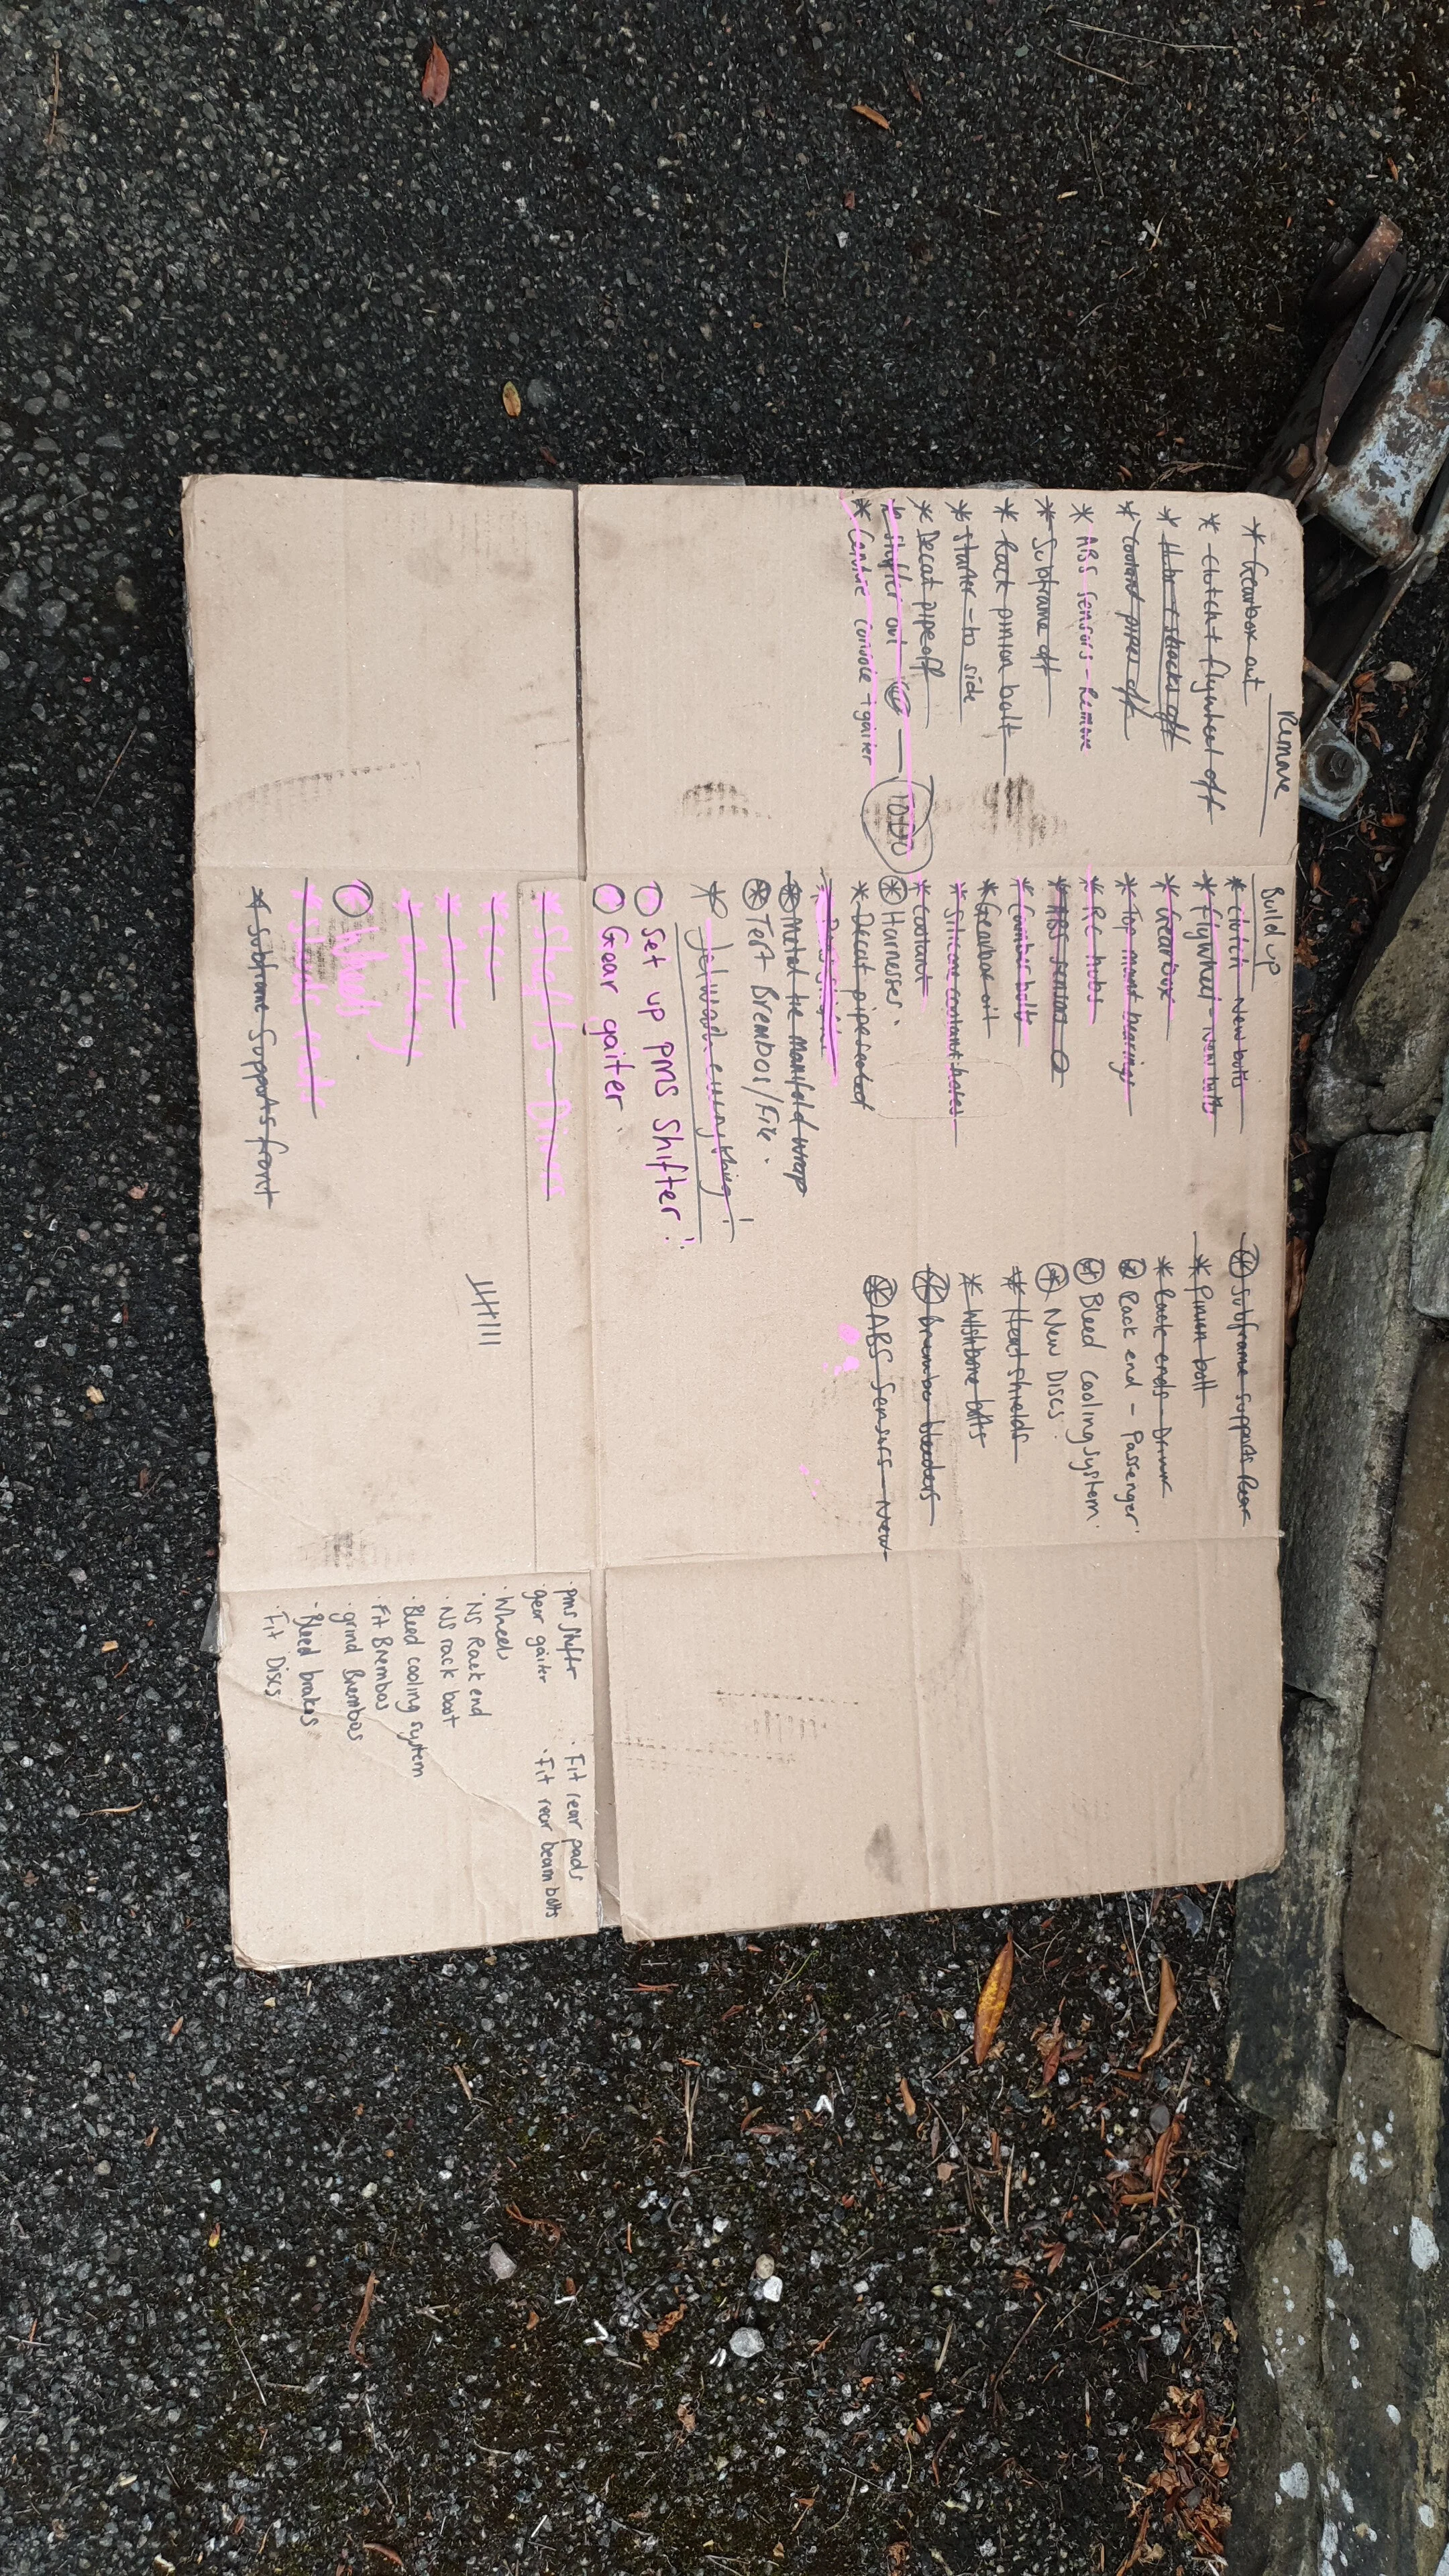 Remove
* Gearbox out
* Clutch + flywheel off
* Hubs + shocks off
* Coolant pipes off
* ABS sensors - Remove
* Subframe off
* Rack pinion bolt
* Starter - to side
* Decat pipe off
* Shifter out
TODO
* Centre console + gaiter
Build up
* Clutch - New bolts
* Flywheel - New bolts
* Gearbox
* Top mount bearings
* RC hubs
* ABS sensors
* Camber bolts
* Gearbox oil
* Silicone coolant hoses
* Coolant
* Harnesses.
* Decat pipe
* Metal tie manifold wrap
* Test Brembos/Fix.
* Jetwash everything!
Set up pms Shifter!
Gear gaiter
* Shafts - Driver
* ECU
* Battery
* Wheels
* Subframe Supports front
* Subframe supports Rear
* Pinion bolt
* Rack ends - Driver
* Rack end - Passenger
* Bleed cooling system.
* New Discs
* Heat shields
* Wishbone bolts
* Brembo bleeders
* ABS Sensors - New
· pms Shifter
· gear gaiter
· Wheels
· NS Rack end
· NS rack boot
· Bleed cooling system
· Fit Brembos
· grind Brembos
· Bleed brakes
· Fit Discs
· Fit rear pads
· Fit rear beam bolts